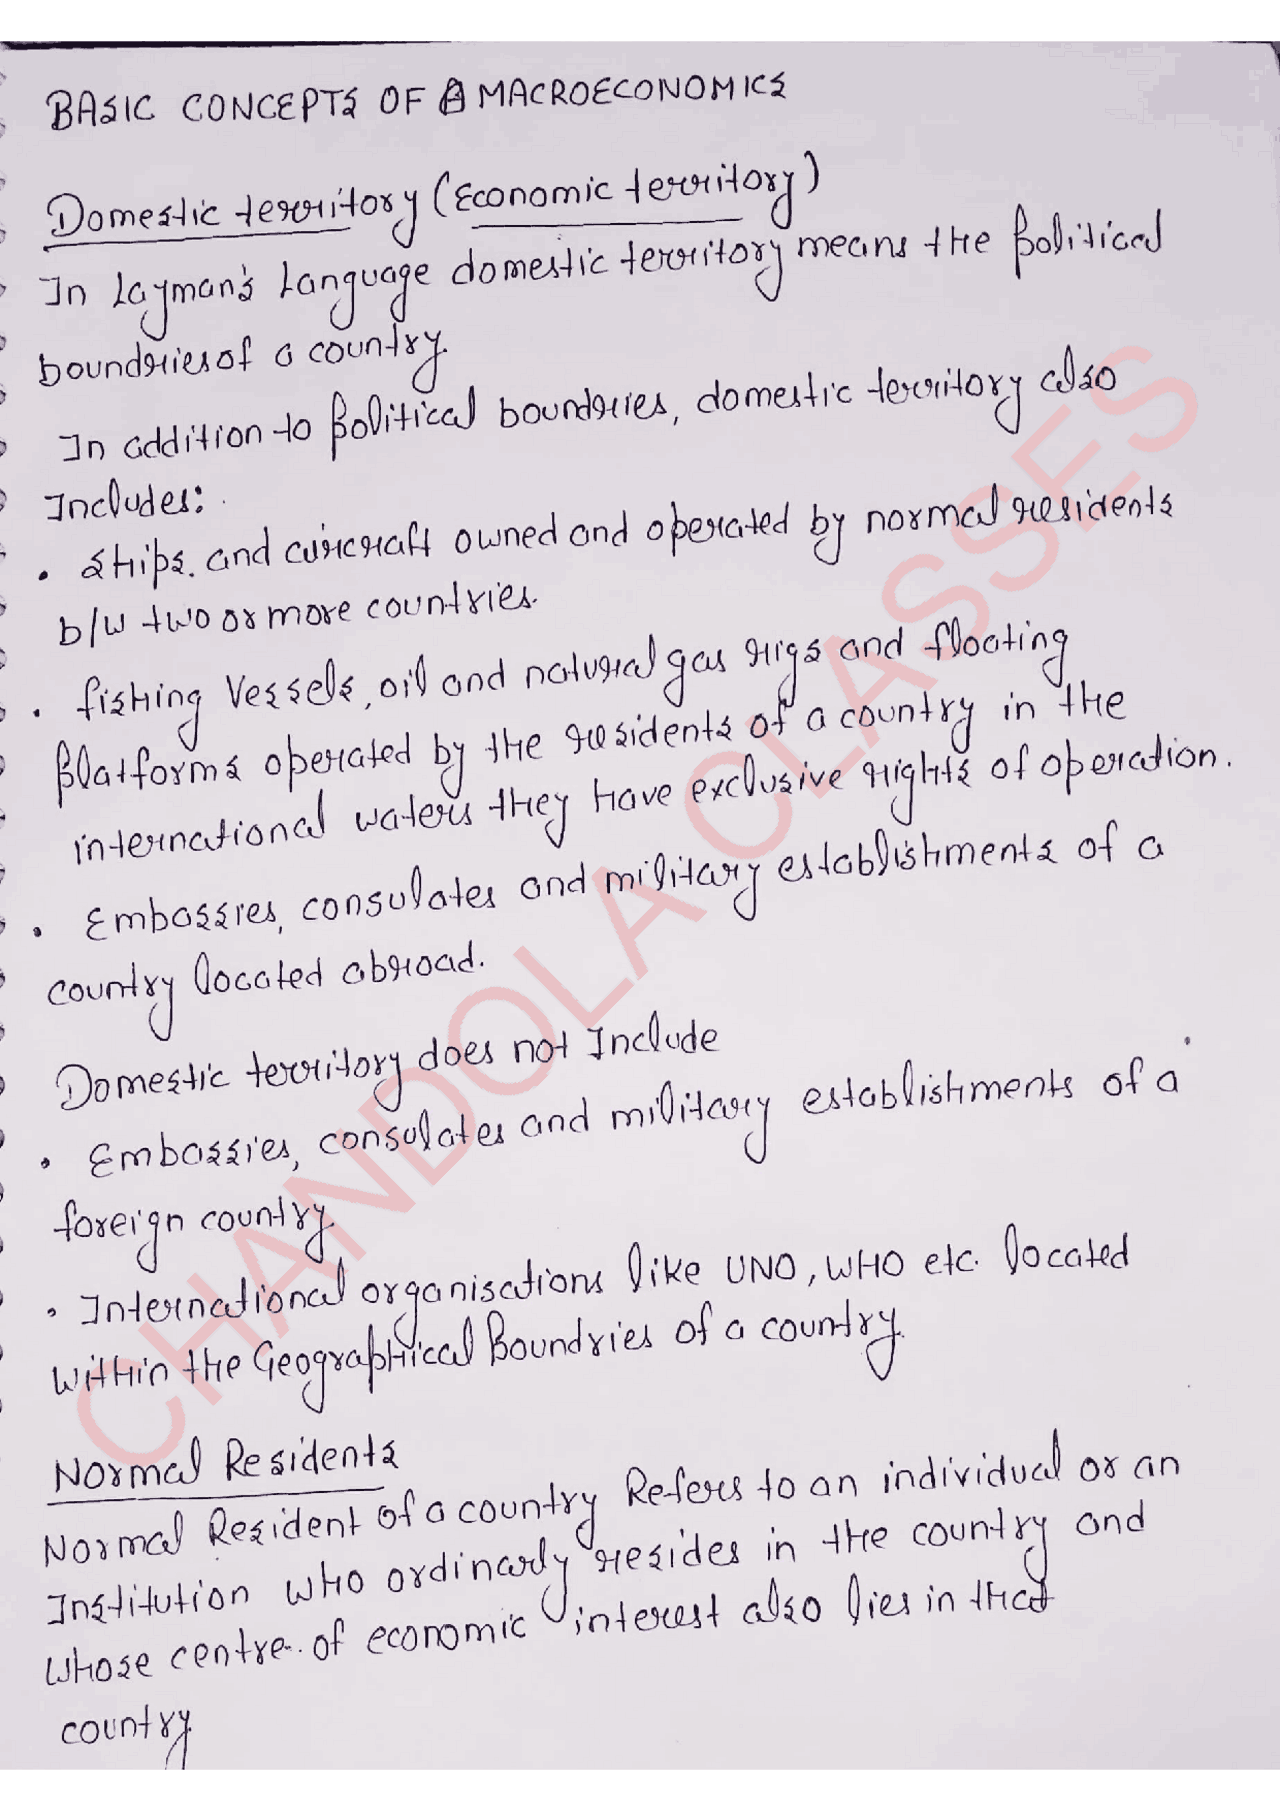 BASIC CONCEPTS OF MACROECONOMICS
Domestic territory (Economic territory)
In Layman's Language domestic territory means the political
boundries of a country.
In addition to political boundries, domestic territory also
Includes:
• Ships. and aircraft owned and operated by normal residents
b/w two or more countries.
• fishing Vessels, oil and natural gas rigs and floating
platforms operated by the residents of a country in the
international waters they have exclusive rights of operation.
• Embassies, consulates and military establishments of a
country located abroad.
Domestic territory does not Include
• Embassies, consulates and military establishments of a
foreign country.
• International organisations like UNO, WHO etc. located
within the Geographical Boundries of a country.
Normal Residents
Normal Resident of a country Refers to an individual or an
Institution who ordinarly resides in the country and
whose centre of economic interest also lies in that
country.
CHANDOLA CLASSES